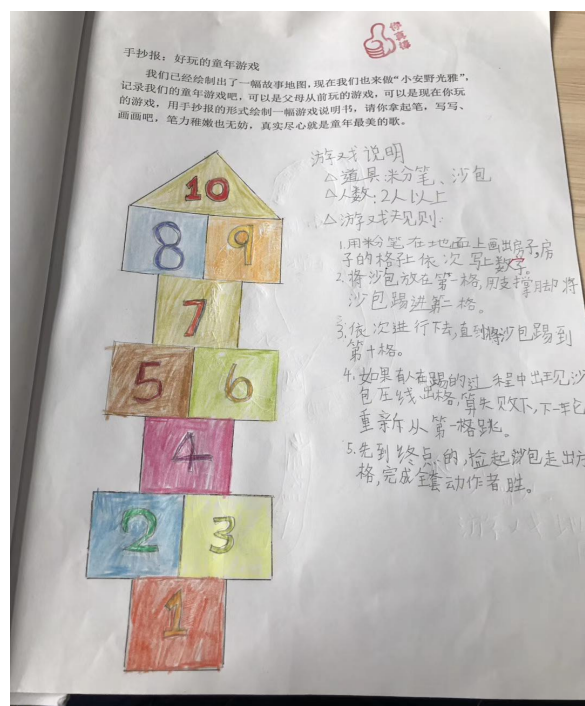 你真棒
手抄报：好玩的童年游戏
我们已经绘制出了一幅故事地图，现在我们也来做“小安野光雅”，
记录我们的童年游戏吧，可以是父母从前玩的游戏，可以是现在你玩
的游戏，用手抄报的形式绘制一幅游戏说明书，请你拿起笔，写写、
画画吧，笔力稚嫩也无妨，真实尽心就是童年最美的歌。
游戏说明
△道具:粉笔、沙包
△人数:2人以上
△游戏规则:
1.用粉笔在地面上画出房子,房
子的格子依次写上数字。
2.将沙包放在第一格,用支撑脚将
沙包踢进第一格。
3.依次进行下去,直到将沙包踢到
第十格。
4.如果有人在踢的过程中出现沙
包压线出格,算失败下,下一轮
重新从第一格跳。
5.先到终点的,捡起沙包走出
格,完成全套动作者胜。
10
8 9
7
5 6
4
2 3
1